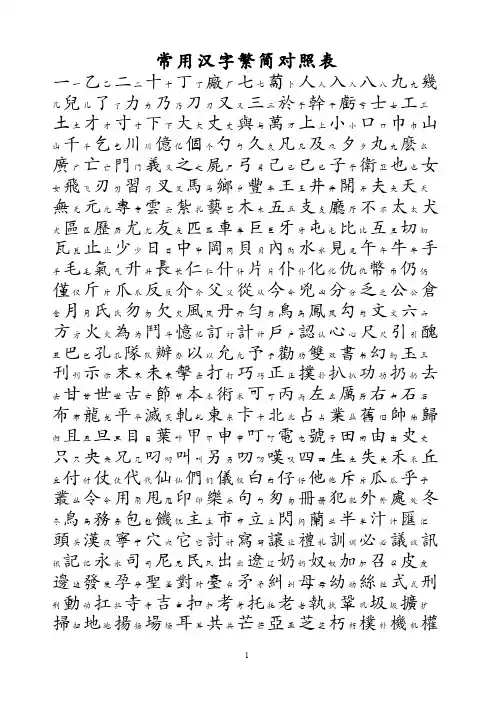 常用汉字繁简对照表
一一乙乙二二十十丁丁廠厂七七蔔卜人人入入八八九九幾
几兒儿了了力力乃乃刀刀又又三三於于幹干虧亏士士工工
土土才才寸寸下下大大丈丈與与萬万上上小小口口巾巾山
山千千乞乞川川億亿個个勺勺久久凡凡及及夕夕丸丸麼么
廣广亡亡門门義义之之屍尸弓弓己己已已子子衛卫也也女
女飛飞刃刃習习叉叉馬马鄉乡豐丰王王井井開开夫夫天天
無无元元專专雲云紮扎藝艺木木五五支支廳厅不不太太犬
犬區区歷历尤尤友友匹匹車车巨巨牙牙屯屯比比互互切切
瓦瓦止止少少日日中中岡冈貝贝內内水水見见午午牛牛手
手毛毛氣气升升長长仁仁什什片片仆仆化化仇仇幣币仍仍
僅仅斤斤爪爪反反介介父父從从今今兇凶分分乏乏公公倉
仓月月氏氏勿勿欠欠風风丹丹勻匀烏乌鳳凤勾勾文文六六
方方火火為为鬥斗憶忆訂订計计戶户認认心心尺尺引引醜
丑巴巴孔孔隊队辦办以以允允予予勸劝雙双書书幻幻玉玉
刊刊示示末末未未擊击打打巧巧正正撲扑扒扒功功扔扔去
去甘甘世世古古節节本本術术可可丙丙左左厲厉右右石石
布布龍龙平平滅灭軋轧東东卡卡北北占占業业舊旧帥帅歸
归且且旦旦目目葉叶甲甲申申叮叮電电號号田田由由史史
只只央央兄兄叼叼叫叫另另叨叨嘆叹四四生生失失禾禾丘
丘付付仗仗代代仙仙們们儀仪白白仔仔他他斥斥瓜瓜乎乎
叢丛令令用用甩甩印印樂乐句句匆匆冊册犯犯外外處处冬
冬鳥鸟務务包包饑饥主主市市立立閃闪蘭兰半半汁汁匯汇
頭头漢汉寧宁穴穴它它討讨寫写讓让禮礼訓训必必議议訊
讯記记永永司司尼尼民民出出遼辽奶奶奴奴加加召召皮皮
邊边發发孕孕聖圣對对臺台矛矛糾纠母母幼幼絲丝式式刑
刑動动扛扛寺寺吉吉扣扣考考托托老老執执鞏巩圾圾擴扩
掃扫地地揚扬場场耳耳共共芒芒亞亚芝芝朽朽樸朴機机權
1